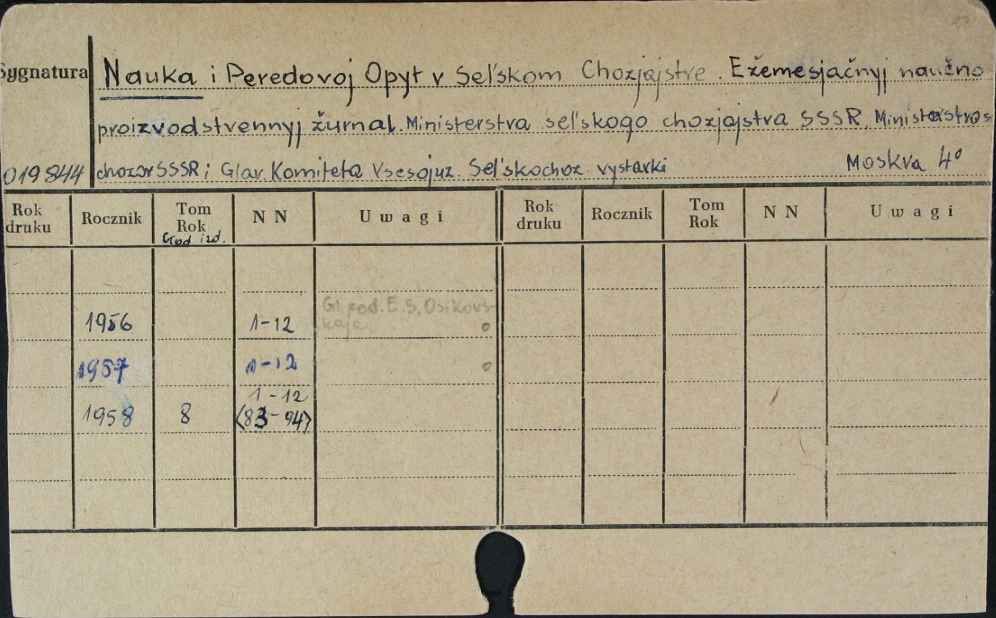 Sygnatura
Nauka i Peredovoj Opyt v Sel'skom Chozjajstve. Ežemesjačnyj naučno
proizvodstvennyj žurnal. Ministerstva sel'skogo chozjajstva SSSR, Ministerstva
019844 SSSR i Glav. Komiteta Vsesojuz. Sel'skochoz. vystavki Moskva 4°
Rok druku Rocznik Tom Rok NN Uwagi Rok druku Rocznik Tom Rok NN Uwagi
God izd.
Gl. red. E. S. Osikovs-
1956 1-12 kaja.
1957 1-12
1-12
1958 8 <83-94>